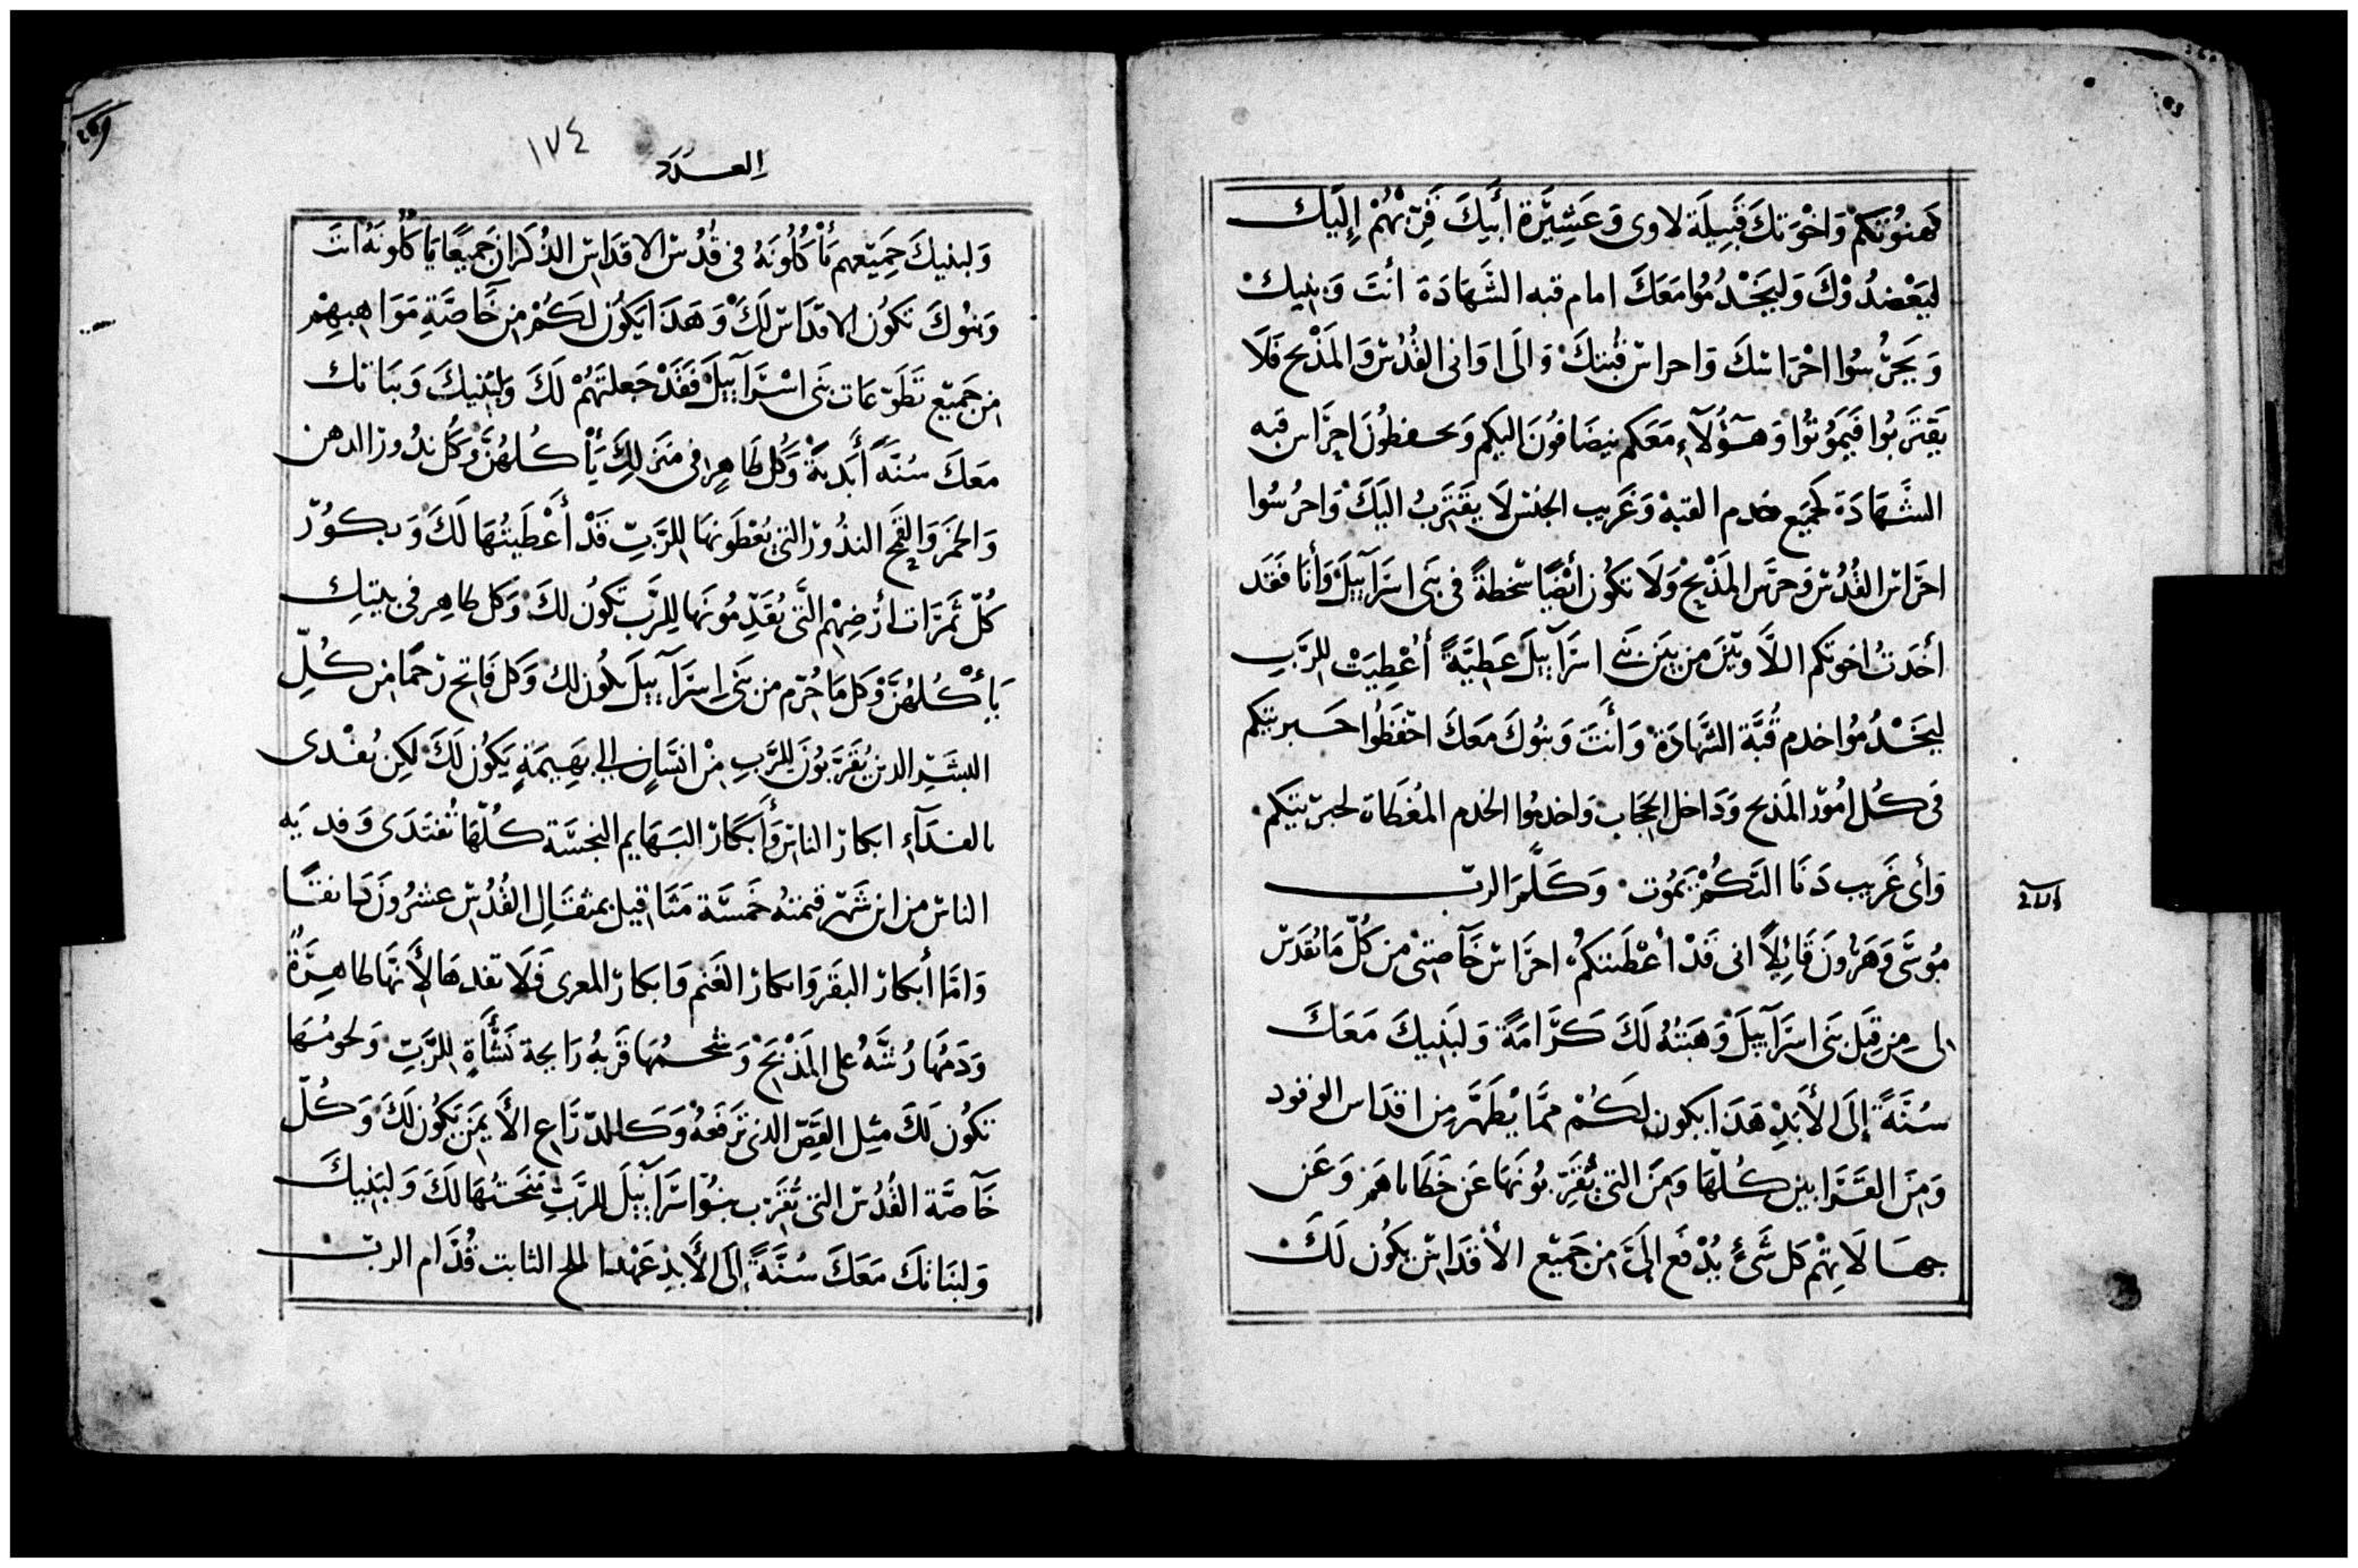 كهنوتكم وَاخْوَتكَ قَبِيلَة لاوى وَعَشِيَرة أَبيكَ قَرِّبْهُمْ إِلَيك
ليَعْضدُوْكَ وَليَخْدُمُوا مَعَكَ امام قبه الشَهَادَة أنتَ وَبنيك
وَيَحَرُسُوا احْرَاسَكَ وَاحراس قُبتكَ وَالَى اوَانى القُدُس وَالمَذْبح فَلَا
يَقتَربُوا فَيَموُتُوا وَهَؤُلَآءِ مَعَكم يَنضَافُونَ اليكم وَيحفظُونَ احرَاس قبه
الشَهَادَة كجَمَيع خدم القبه وَغَريب الجنس لَا يقتَربُ اليَكَ وَاحرُسُوا
احرَاس القُدُس وَحرَس المَذْبح وَلَا تكُون أيْضًا سخطَةً فى بَنى اسرَآييلَ وَأنَا فَقَد
أخَدتُ اخوتكم اللَّاويّيَن من بَين بَنى اسرَآييلَ عَطيَّةً أعْطِيَتْ للرَّبِ
ليَخْدُمُوا خدم قُبَّة الشَّهَادَة وَأَنتَ وَبنُوكَ مَعَكَ احْفَظُوا حَبريتكم
فى كُل امُور المَذبح وَدَاخل الحجَاب وَاخدمُوا الخدم المُغطَاة لحبريتكم
وَأى غَريب دَنَا اليَكُمْ يَمُوت وَكَلَّمَ الربّ
مُوسَى وَهَرُونَ قَائِلًا انى قَدْ أعْطَيتكُم احرَاس خَآصتى من كُلّ مَا يُقدَس
لى مِن قِبَل بَنى اسرَآييلَ وَهَبتُهُ لَكَ كَرَامَةً وَلبَنِيكَ مَعَكَ
سُنَةً إِلَى الأَبَدِ هَدَا يكون لَكُمْ ممَّا يُطَهَّر مِن اقدَاس الوقود
وَمِنَ القَرَابين كُلّهَا وَمِنَ التى يُقَرّبُونَهَا عَن خَطَاياهَم وَعَن
جهَالَاتِهْم كل شَىء يُدْفَع الَىَّ من جَميَع الأقدَاس يكُون لَكَ
العــدد ١٧٤
وَلبنيكَ جَمِيْعهم يَأكُلُونَهُ فى قُدُس الاقدَاس الذُكرَان جَميعًا يَاكلُونَهُ انتَ
وَبَنوُكَ تكُون الاقدَاس لَكَ وَهَدَا يَكُون لكَم من خَاصَّةِ مَوَاهبهِمْ
من جَميَع تَطَوّعَات بَنى اسْرَآييلَ فَقَدْ جَعَلتَهُمْ لَكَ وَلبَنيكَ وَبَنَاتك
مَعَكَ سُنَّةً أَبَديةً وَكُل طَاهِر فى مَنزلكَ يَأكُلهُنَّ وَكُل ندُور الدهن
وَالخمَر وَالقَمح النذُور التى يُعْطَونهَا للرَّبِ قَدْ أَعْطَيتُهَا لَكَ وَبكوُر
كُلّ ثَمرَات ارَضِهْم الَّتى يُقَدِّمُونَهَا لِلرَّبِ تَكونُ لكَ وَكل طاهِر فى بَيتِك
يَأكُلهُنَّ وَكل مَا حُرّم من بَنى اسرَآييلَ يكُون لك وَكل فَاتح رَحمًا من كُلِّ
البشَرِ الدين يُقَرَبُونَ لِلرَّبِ مِنْ انسَان الى بَهيمَةٍ يَكُونُ لَكَ لكن يُفدى
بالفدَآء ابكار الناس وَأَبكار البَهَايم النجسَة كُلّهَا تُفتَدى وَفديَه
الناس من ابن شَهَر قيمتهُ خمَسَة مَثَاقيل بمثقَال القُدُس عشرُونَ دَانقًا
وَامَّا أبكار البقَر وَابكار الغَنم وَابكار المعزى فَلَا تفدهَا لأَنَّهَا طاهِرَةٌ
وَدَمُهَا رُشَّهُ على المَذْبَح وَشَحمُهَا قَربهُ رَايحة نَشَأةٍ للرَّبِ وَلحوُمُهَا
تكُون لَكَ مثِل القَصّ الدى تَرفَعهُ وَكالدرَاع الأَيمَن يَكُون لَكَ وَكُلّ
خَآصَّة القُدُس التى تُقرَب بنُوا اسرَآييلَ للرَّبِ مَنَحتهَا لَكَ وَلبَنِيكَ
وَلبنَاتكَ مَعَكَ سُنَّةً إِلَى الأَبدِ عَهْد الملح الثابت قُدَّام الربّ